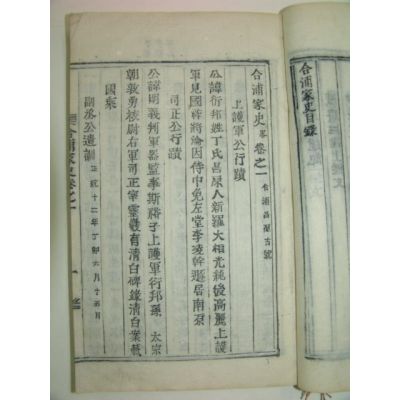 合浦家史目錄
合浦家史卷之一 合浦昌原古號
上護軍公行蹟
公諱衍邦姓丁氏昌原人新羅大相光純後高麗上護
軍見國幹將淪因侍中免左堂李凌幹退居南原
司正公行蹟
公諱明義判軍器監事斯蕣子上護軍衍邦孫 太宗
朝敦勇校尉右軍司正宗靈縣有清白碑錄清白案載
國乘
副丞公遺訓 正統十二年丁卯六月十五日
合浦家史卷之一
一